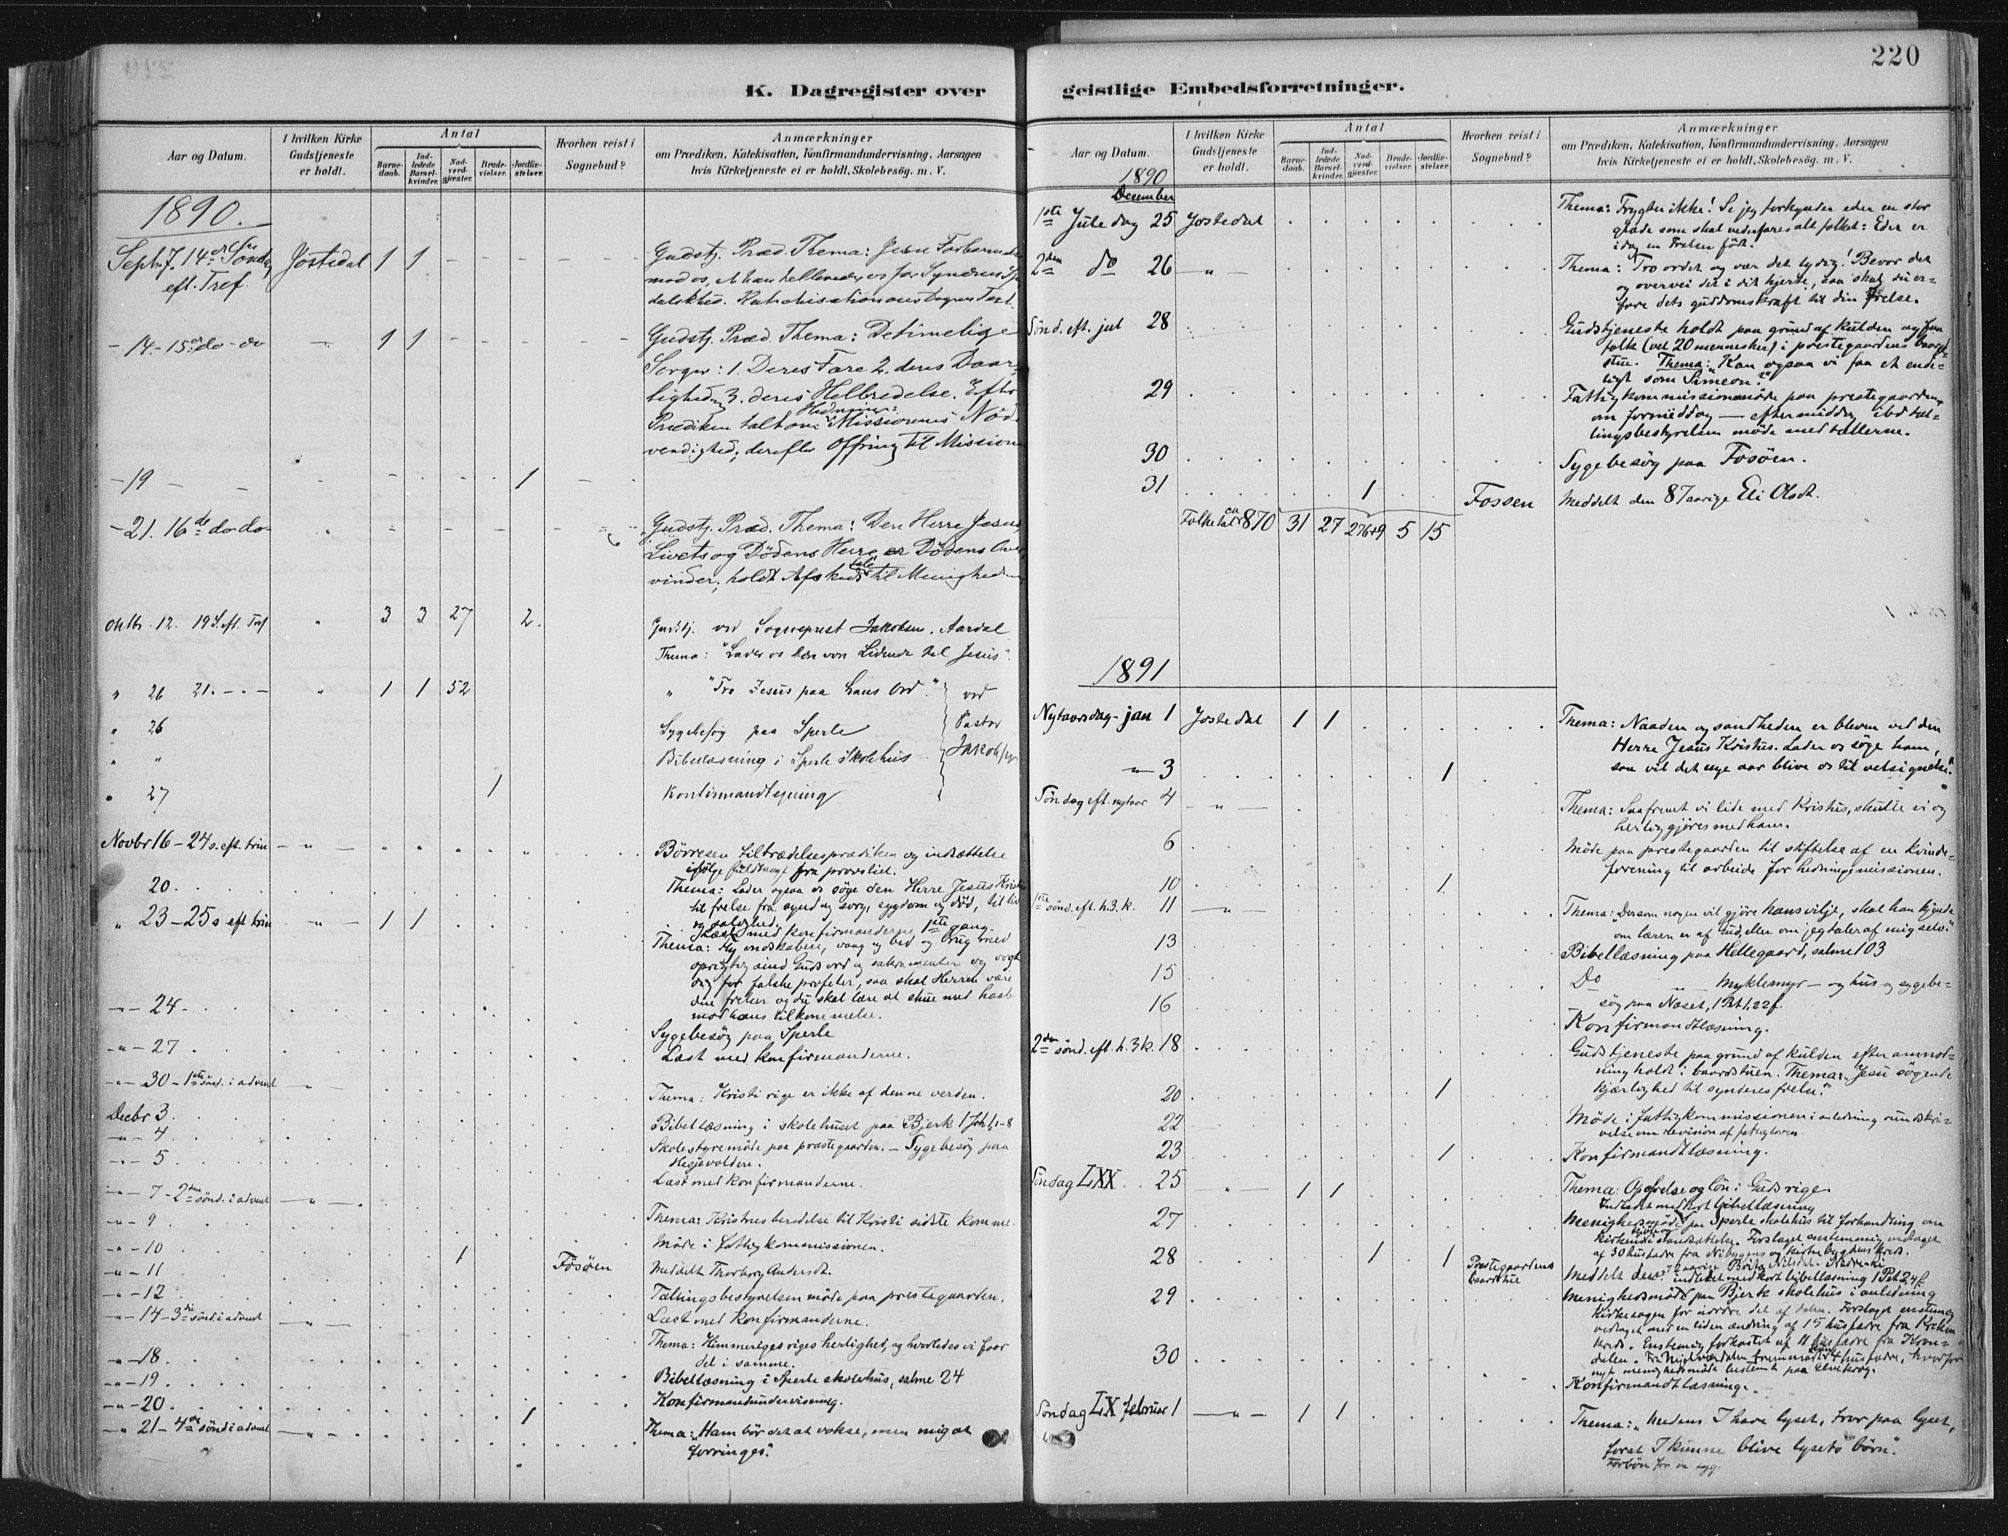 220
K. Dagregister over
Aar og Datum.
I hvilken Kirke Gudstjeneste er holdt.
Antal
Barne-daab.
Ind-ledede Barsel-kvinder.
Nad-verd-gjæster.
Brude-vielser.
Jordfæ-stelser.
Hvorhen reist i Sognebud?
Anmærkninger
om Prædiken, Katekisation, Konfirmandundervisning, Aarsagen
hvis Kirketjeneste ei er holdt, Skolebesøg. m. V.
1890.
Septb. 7. 14de Søndag Jostedal 1 1 Gudstj. Præd. Thema: Jesu Forbarnelse
eft. Tref.
- 14. - 15de do - do 1 1 Gudstj. Præd. Thema: De timelige
Sorger: 1. Deres Fare 2. deres Daar-
lighed og 3. deres Helbredelse. Efter
Prædiken talt om Hedninge Missionens Nød-
vendighed; derefter Offring til Missionen
- 19 - 1
- 21. 16de do - do Gudstj. Præd. Thema: Den Herre Jesus,
Livets og Dødens Herre er Dødens Over-
vinder; holdt Afskeds tale til Menigheden
Oktbr. 12. 19 S. eft. Tref 3 3 27 2. Gudstj. ved Sogneprest Jakobsen, Aardal
Thema: "Lader os bære vore Lidende til Jesus".
" 26 21. - - - 1 1 52 " "Tro Jesus paa hans Ord." ved
" 26 Sygebesøg paa Sperle Pastor
" " Bibellæsning i Sperle Skolehus Jakobsen
" 27 1 Konfirmandlæsning
Novbr 16 - 24 s. eft. trin Børresen tiltrædelsesprædiken og indsættelse
ifølge fuldmagt fra provstiet.
20 Thema: Lader ogsaa os søge den Herre Jesus Kristus
til frelse fra synd og sorg, sygdom og død, til liv
og salighed.
Læst med konfirmanderne 1ste gang.
" 23 - 25 s eft trin 1 1 Thema: Fly ondskaben, vaag og bed og brug med
oprigtig sind Guds ord og sakramenter og vogt
dig for falske profeter, saa skal Herren være
din frelser og du skal lære at skue med haab
mod hans tilkommelse.
- " - 24 Sygebesøg paa Sperle
- " - 27 Læst med konfirmanderne.
- " - 30 - 1ste sønd. i advent Thema: Kristi rige er ikke af denne verden.
Decbr 3 Bibellæsning i skolehuset paa Bjerk 1 Joh 1, 1-8
- " - 4 Skolestyremøde paa præstegaarden. - Sygebesøg paa
Hegjevolden.
- " - 5 Læst med konfirmanderne.
- " - 7 - 2den sønd. i advent Thema: Kristnes beredelse til Kristi sidste komme.
- " - 9 Møde i fattigkommissionen.
- " - 10 1 Fosøen Meddelt Thorborg Andersdt.
- " - 11 Tællingsbestyrelsen møde paa prestegaarden.
- " - 12 Læst med konfirmanderne.
- " - 14 - 3die sønd i advent Thema: Himmeriges riges herlighed, og hvorledes vi faar
del i samme.
- " - 18 Bibellæsning i Sperle skolehus, salme 24
- " - 19
- " - 20 Konfirmandundervisning.
- " - 21 - 4de sønd i advent 1 Thema: "Ham bør det at vokse, men mig at
forringes".
geistlige Embedsforretninger.
Aar og Datum.
I hvilken Kirke Gudstjeneste er holdt.
Antal
Barne-daab.
Ind-ledede Barsel-kvinder.
Nad-verd-gjæster.
Brude-vielser.
Jordfæ-stelser.
Hvorhen reist i Sognebud?
Anmærkninger
om Prædiken, Katekisation, Konfirmandundervisning. Aarsagen
hvis Kirketjeneste ei er holdt, Skolebesøg. m. V.
1890
December
1ste Juledag 25 Jostedal Thema: Frygter ikke! Se jeg forkynder eder en stor
glæde som skal vederfares alt folket: Eder er
idag en Frelser født.
2den do 26 - " - Thema: Tro ordet og vær det lydig! Bevar det
og overvei det i dit hjerte, saa skal du er-
fare dets guddomskraft til din frelse.
Sønd. eft. jul 28 Gudstjeneste holdt paa grund af kulden og faa
folk (vel 20 mennesker) i prestegaardens baard-
stue. Thema: "Kan ogsaa vi faa et ende-
ligt som Simeon?"
29 Fattigkommissionsmøde paa prestegaarden
om formiddag - eftermiddag ibd tæl-
lingsbestyrelsen møde med tællerne.
30 Sygebesøg paa Fosøen.
31 1 Fossen Meddelt den 87 aarige Eli Olsdt.
Folketal ca 870 31 27 276+9 5 15
1891
Nytaarsdag - jan 1 Jostedal 1 1 Thema: Naaden og sandheden er bleven ved den
Herre Jesus Kristus. Lader os søge ham,
saa vil det nye aar blive os til velsignelse."
- " - 3 1
Søndag eft. nytaar 4 - " - Thema: Saafremt vi lide med Kristus, skulle vi og
herliggjøres med ham.
6 Møde paa prestegaarden til stiftelse af en kvinde-
forening til arbeide for hedningemissionen.
10 1
1ste sønd. eft. h. 3. k. 11 - " - Thema: "Dersom nogen vil gjøre hans vilje, skal han kjende
om læren er af Gud, eller om jeg taler af mig selv."
13 Bibellæsning paa Hellegaard, salme 103
15 Do " Myklemyr - og hus og sygebe-
søg paa Næset, 1 Pet 1, 22 f.
16 Konfirmandlæsning.
2den sønd. eft. h. 3 k. 18 Gudstjeneste paa grund af kulden efter anmod-
ning holdt i baardstuen. Thema: "Jesu søgende
kjærlighed til synderes frelse."
20 1
22 Møde i fattigkommissionen i anledning rundskri-
velse om revision af fattigloven.
23 1 Konfirmandlæsning.
Søndag LXX 25 - " - 1 1 Thema: Opofrelse og løn i Guds rige.
Indledt med kort bibellæsning
27 Menighedsmøde paa Sperle skolehus til forhandling om
28 1 1 Prestegaardens baardstue
29 Menighedsmøde paa Bjerk skolehus i anledning
kirkesagen for nordre del af dalen.
30
Konfirmandlæsning.
Søndag LX februar 1 - " - 1 1 Thema: "Medens I have lyset, tror paa lyset,
forat I kunne blive lysets børn".
Forbøn for en syg.